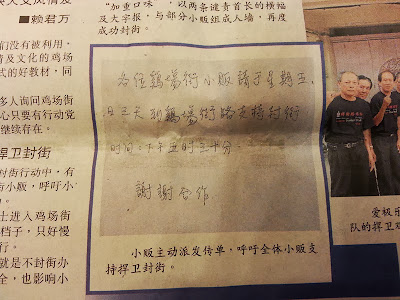 ■赖君万
们没有被利用，
及文化的鸡场
的好教材，同
多人询问鸡场街
心只要有行动党
继续存在。
捍卫封街
封街行动中，有
街小贩，呼吁小
士进入鸡场街
档子，只好慢
行。
就是不封街办
全，也影响小
“加重口味”，以两条谴责首长的横幅
及大字报，与部分小贩组成人墙，再度
成功封街。
各位鷄場街小販請于星期五、
日三天到鷄場街路支持封街
时间：下午五时三十分。
謝謝合作
小贩主动派发传单，呼吁全体小贩支
持捍卫封街。
爱极乐
队的捍卫